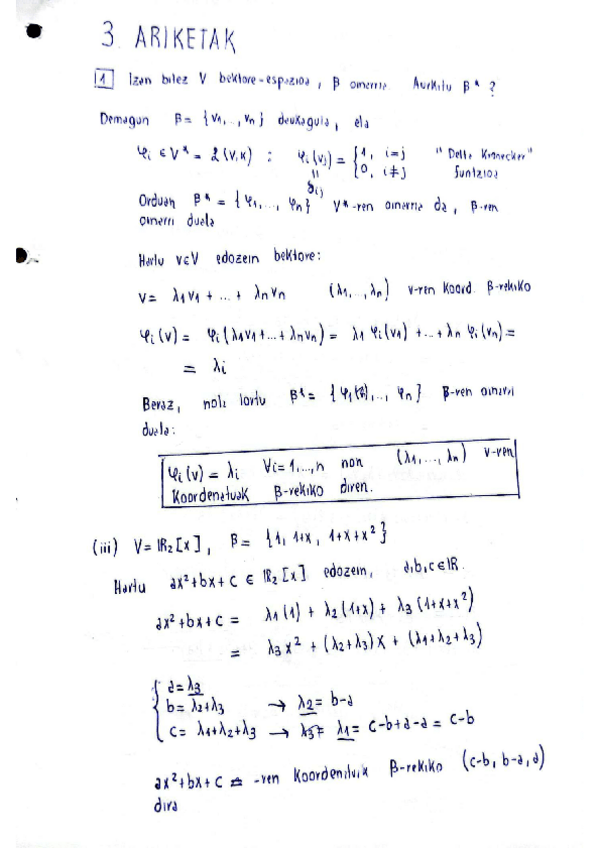 3. ARIKETAK
1 Izan bitez V bektore-espazioa, β oinarria Aurkitu β* ?
Demagun β = {v1,..., vn} daukagula, eta
φi ∈ V* = L(V,K) : φi(vj) = { 1, i=j "Delta Kronecker"
0, i≠j funtzioa
δij
Orduan β* = {φ1,..., φn} V*-ren oinarria da, β-ren
oinarri duala
Hartu v∈V edozein bektore:
v = λ1v1 + ... + λnvn (λ1,..., λn) v-ren koord. β-rekiko
φi(v) = φi(λ1v1+...+λnvn) = λ1 φi(v1) + ... + λn φi(vn) =
= λi
Beraz, nola lortu β* = {φ1,..., φn} β-ren oinarri
duala:
φi(v) = λi ∀i=1,...,n non (λ1,..., λn) v-ren
koordenatuak β-rekiko diren.
(iii) V = ℝ2[x], β = {1, 1+x, 1+x+x²}
Hartu ax²+bx+c ∈ ℝ2[x] edozein, a,b,c∈ℝ.
ax²+bx+c = λ1(1) + λ2(1+x) + λ3(1+x+x²)
= λ3x² + (λ2+λ3)x + (λ1+λ2+λ3)
{ a=λ3
b=λ2+λ3 → λ2=b-a
c=λ1+λ2+λ3 → λ1=c-b+a-a=c-b
ax²+bx+c -ren koordenatuak β-rekiko (c-b, b-a, a)
dira